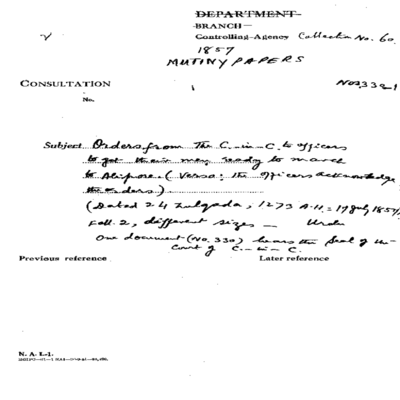 DEPARTMENT
BRANCH
Controlling Agency Collection No. 60
1857
MUTINY PAPERS
CONSULTATION
No.
Subject Orders from The C.-in-C. to officers
to get their men ready to march
to Alipore. (Verso: the officers acknowledge
the orders).
(Dated 24 Zulqada, 1273 A.H. = 17 July 1857)
Foll. 2, different sizes — Urdu
One document (No. 330) bears the Seal of the
Court of C.-in-C.
Previous reference
Later reference
N. A. I.-1.